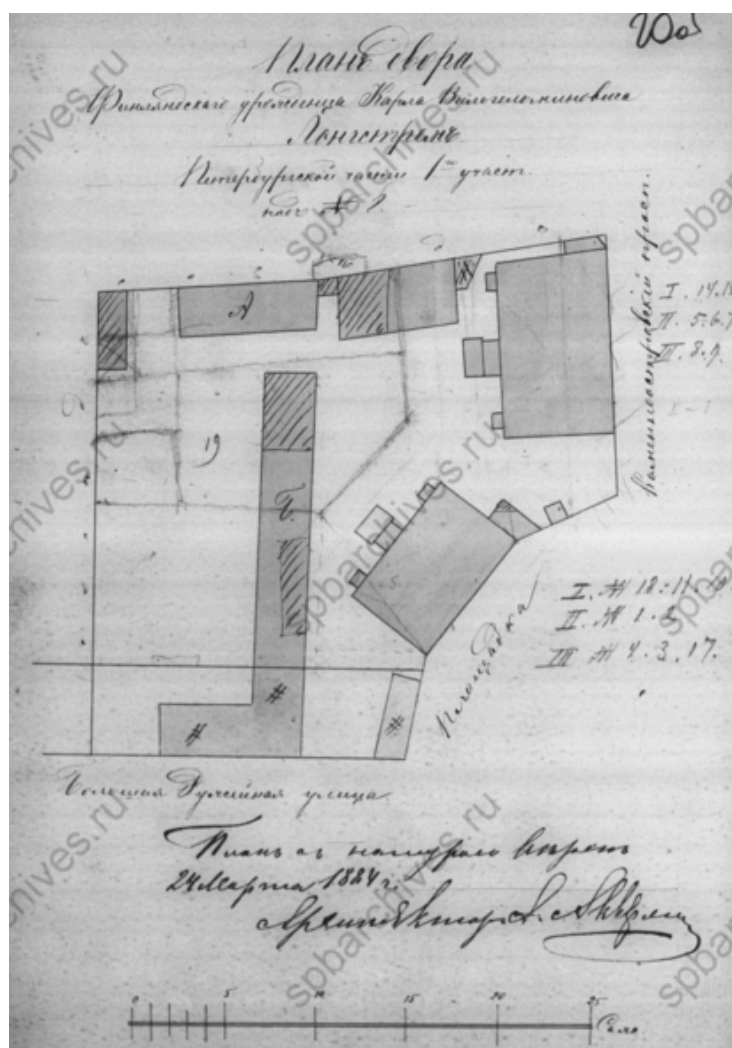 20об
Планъ двора
Финляндскаго уроженца Карла Вильгельминовича
Лонгстремъ
Петербургской части 1го участ.
подъ № 2
А
19
Б.
Каменноостровскій просп.
II. 5.6.7
III. 8.9.
I. № 12.11.10
II. № 1.2.
III № 4.3.17.
Площадка
Большая Ружейная улица
Планъ съ натурою вѣренъ
24 Марта 1884 г.
Архитекторъ
0 5 10 15 20 25 Саж.
spbarchives.ru